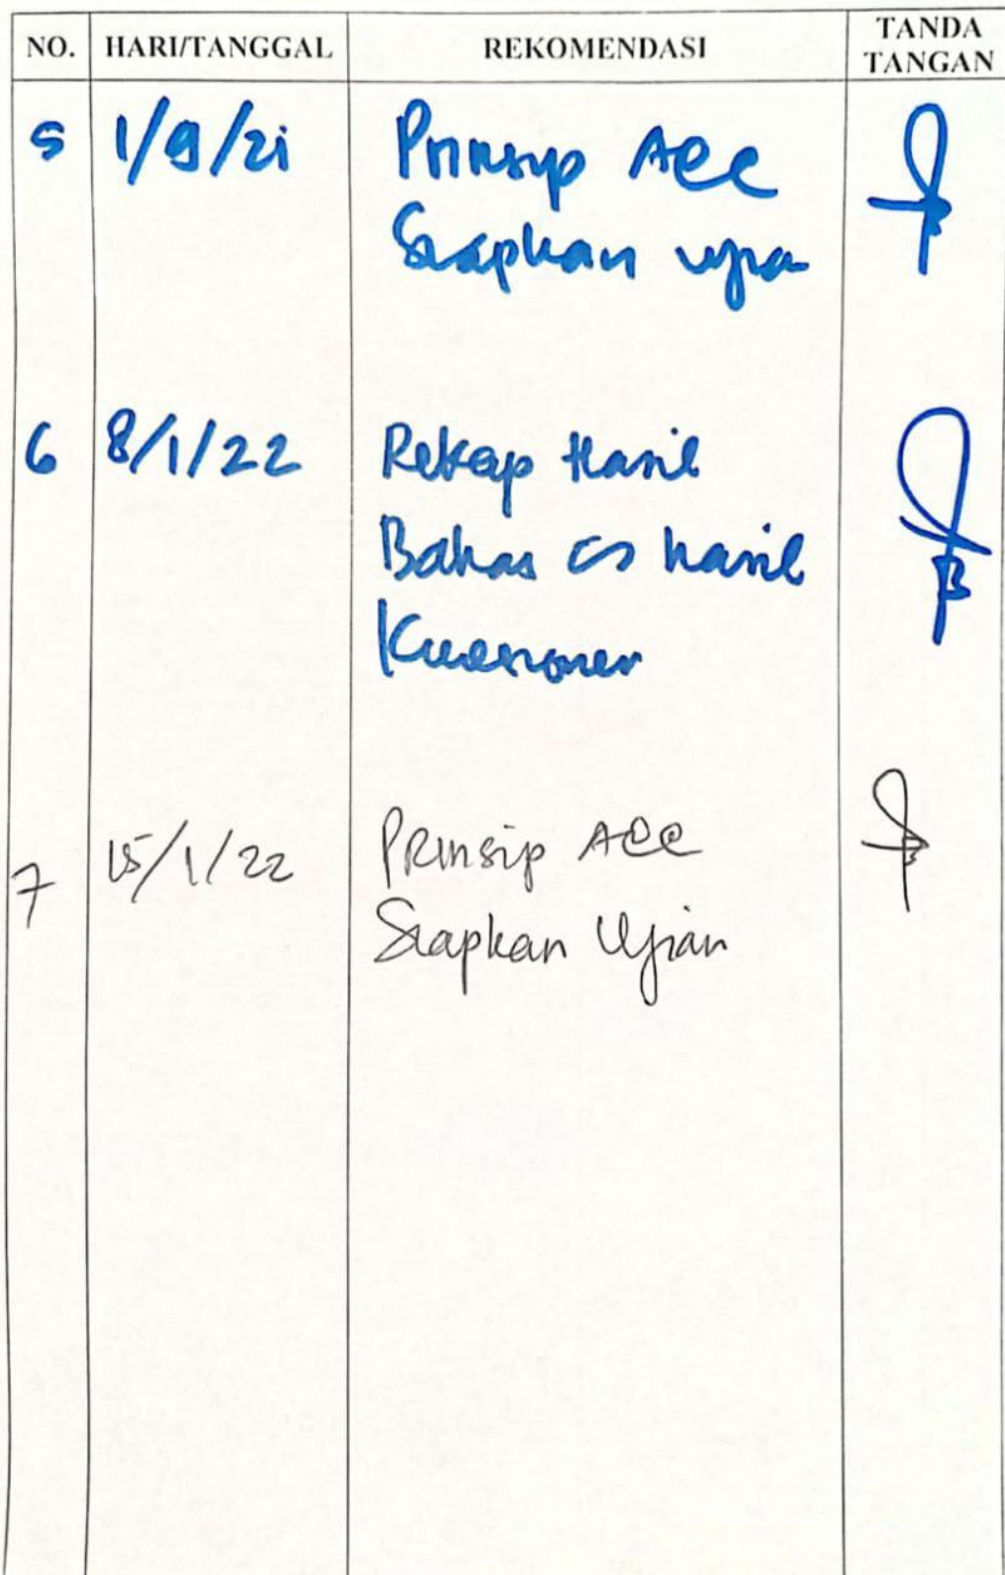 NO. HARI/TANGGAL REKOMENDASI TANDA TANGAN
5 1/9/21 Prinsip ACC
Siapkan ujian
6 8/1/22 Rekap Hasil
Bahas hasil
Kuesioner
7 15/1/22 Prinsip ACC
Siapkan Ujian